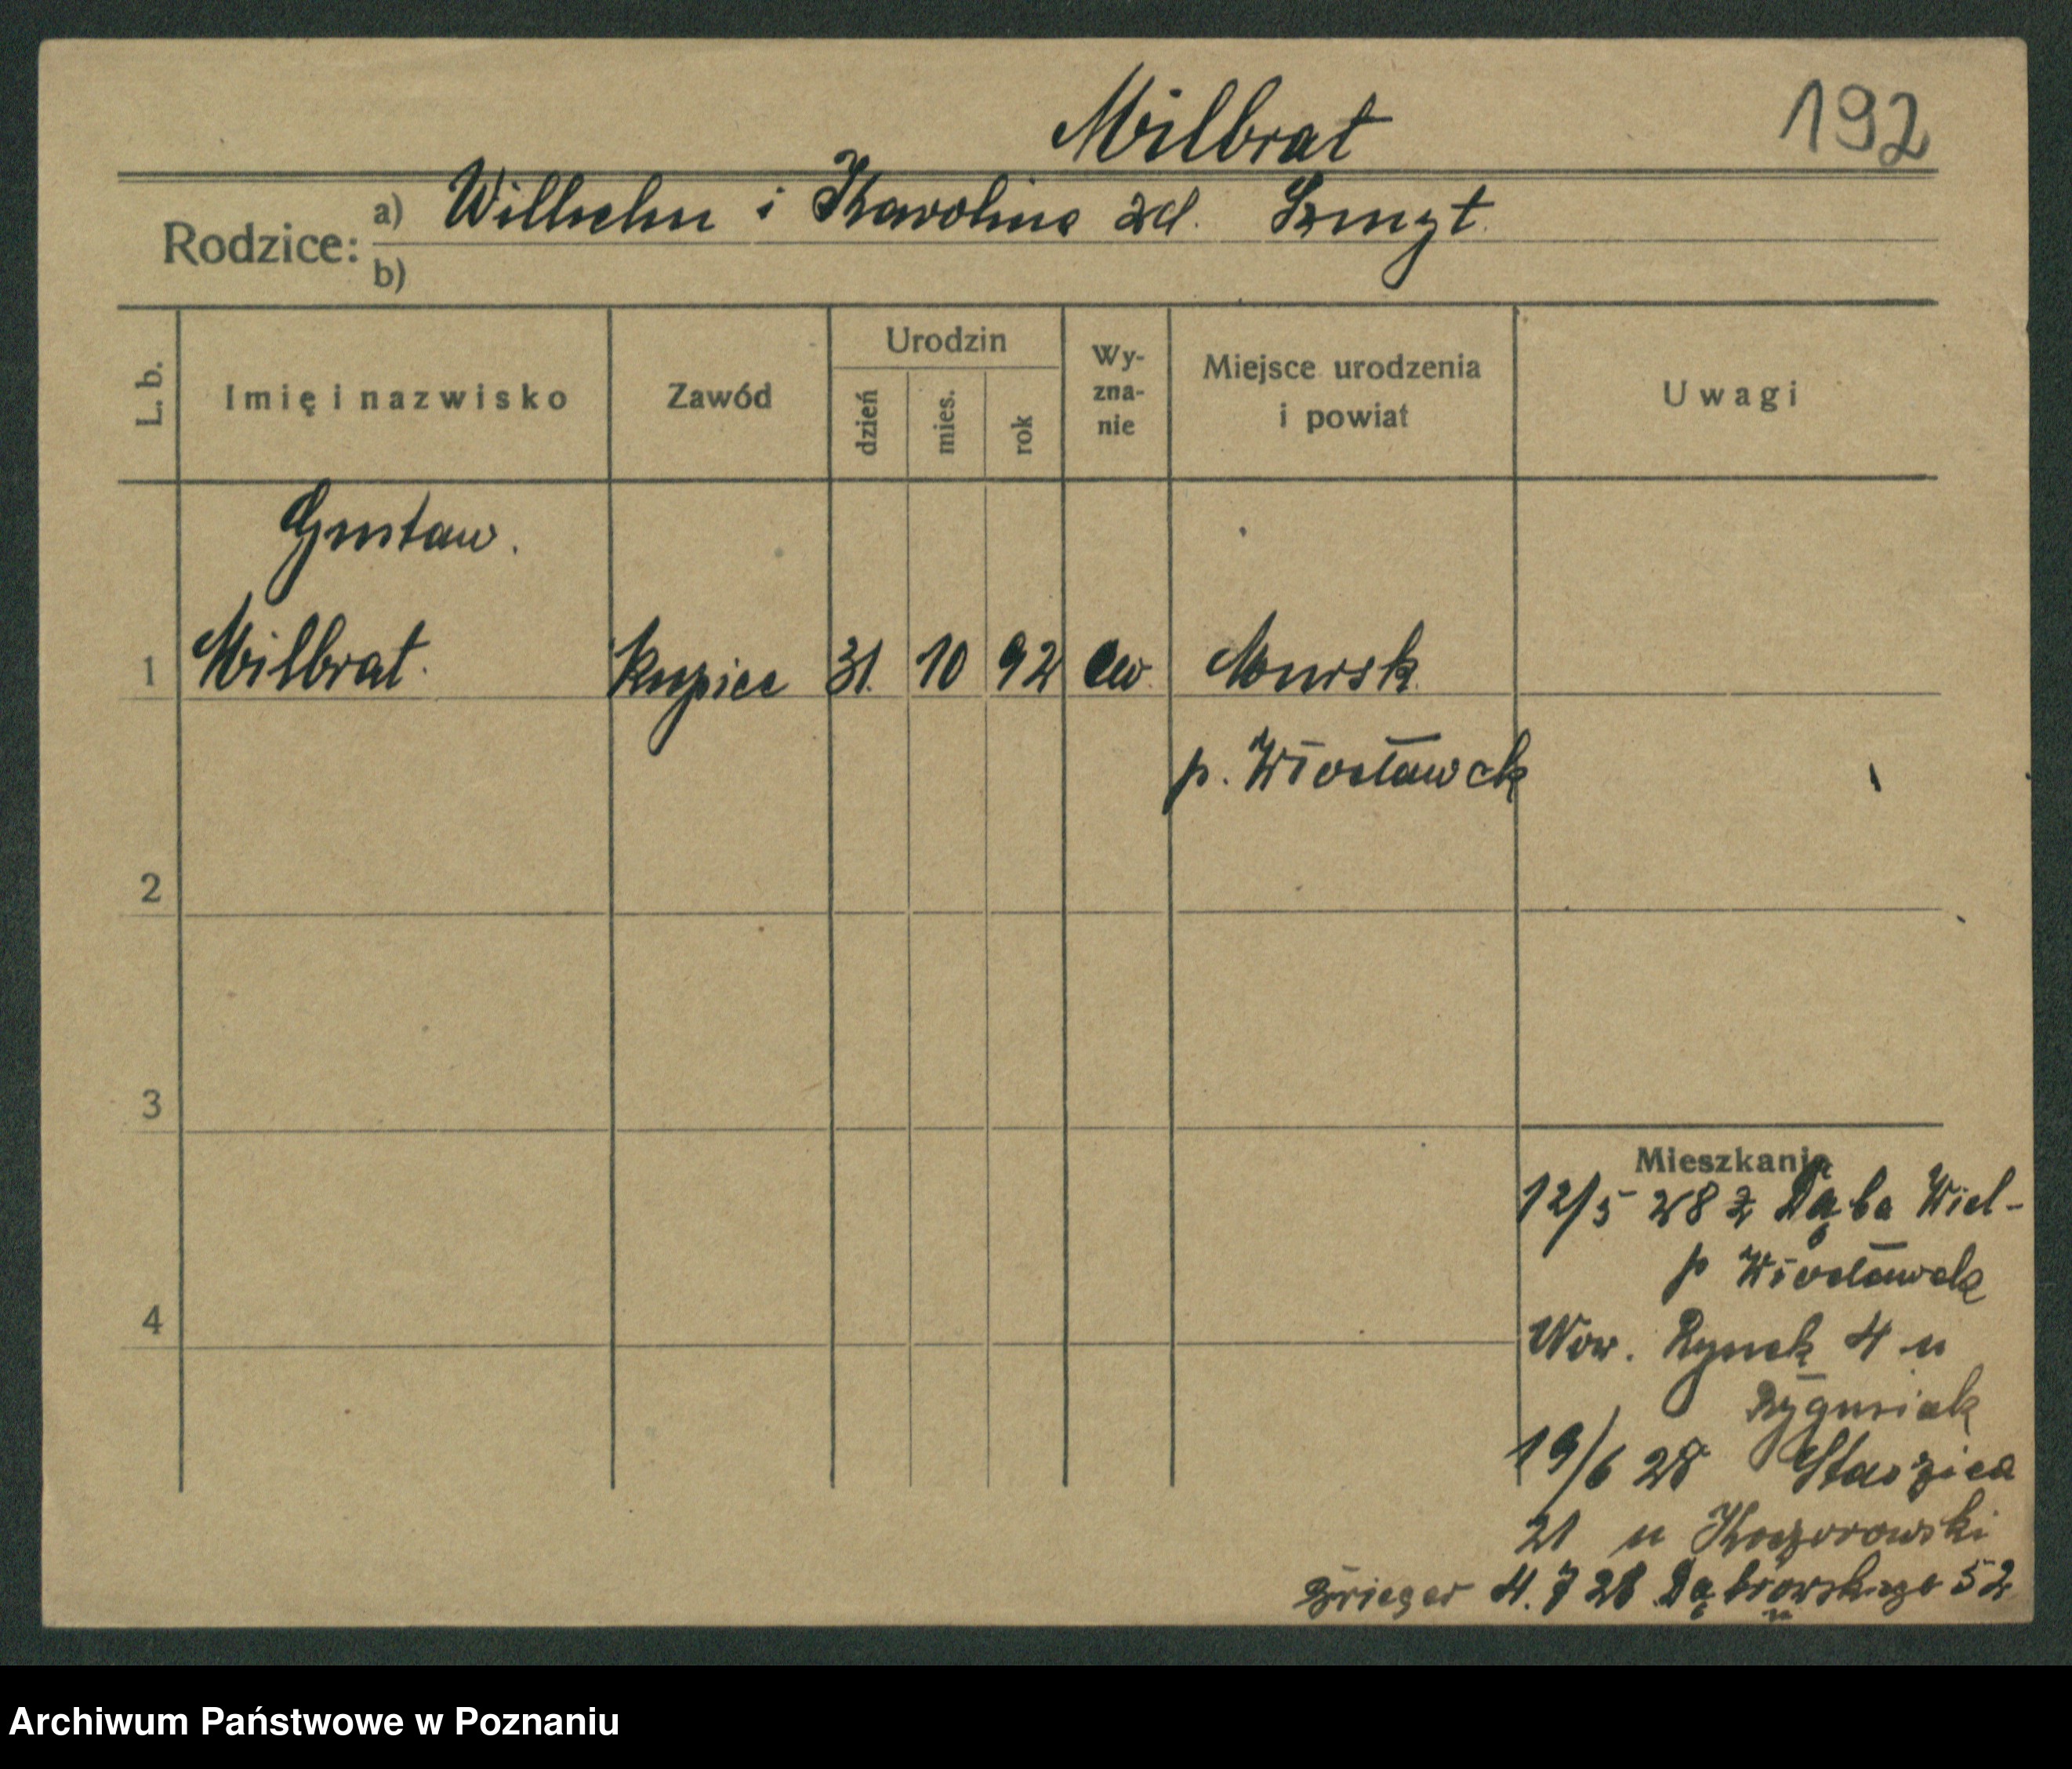 Milbrat 192
Rodzice: a) Wilhelm i Karolina zd. Szmyt.
b)
L. b. Imię i nazwisko Zawód Urodzin dzień mies. rok Wy-zna-nie Miejsce urodzenia i powiat Uwagi
Gustaw.
1 Milbrat. kupiec 31. 10 92 ew. Mursk.
p. Włocławek
2
3
Mieszkania
12/5 28 z Dąba Wiel-
p Włocławek
4
Rynek 4 u
19/6 28 Staszica
21 u Koczorowski
4.7 28. Dąbrowskiego 52
Archiwum Państwowe w Poznaniu